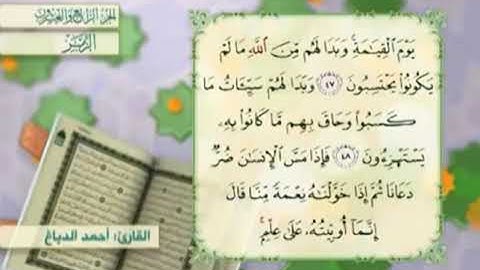 الجزء الرابع والعشرون
الزمر
يَوْمَ ٱلْقِيَٰمَةِ ۚ وَبَدَا لَهُم مِّنَ ٱللَّهِ مَا لَمْ
يَكُونُوا۟ يَحْتَسِبُونَ ٤٧ وَبَدَا لَهُمْ سَيِّـَٔاتُ مَا
كَسَبُوا۟ وَحَاقَ بِهِم مَّا كَانُوا۟ بِهِۦ
يَسْتَهْزِءُونَ ٤٨ فَإِذَا مَسَّ ٱلْإِنسَٰنَ ضُرٌّ
دَعَانَا ثُمَّ إِذَا خَوَّلْنَٰهُ نِعْمَةً مِّنَّا قَالَ
إِنَّمَآ أُوتِيتُهُۥ عَلَىٰ عِلْمٍۭ ۚ
القارئ: أحمد الدباغ